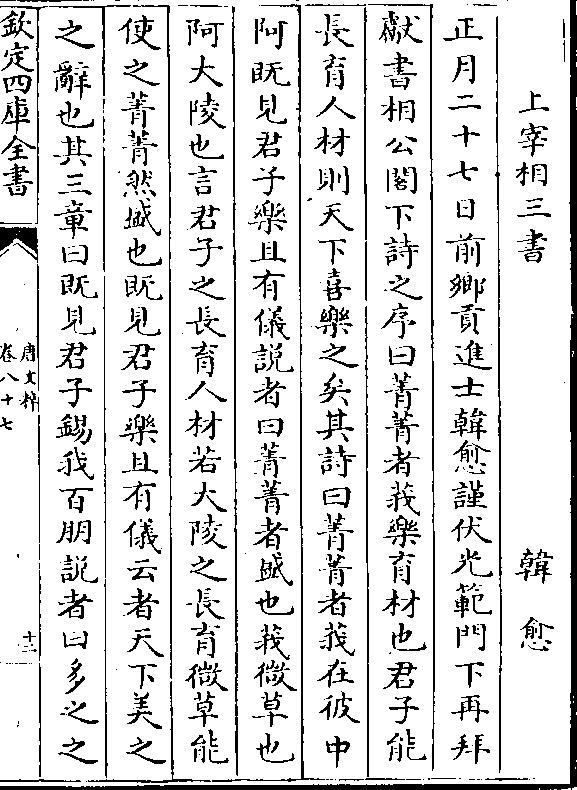 上宰相三書　韓愈
正月二十七日前鄉貢進士韓愈謹伏光範門下再拜
獻書相公閣下詩之序曰菁菁者莪樂育材也君子能
長育人材則天下喜樂之矣其詩曰菁菁者莪在彼中
阿既見君子樂且有儀説者曰菁菁者盛也莪微草也
阿大陵也言君子之長育人材若大陵之長育微草能
使之菁菁然盛也既見君子樂且有儀云者天下美之
之辭也其三章曰既見君子錫我百朋説者曰多之之
欽定四庫全書
唐文粹
卷八十七
十三